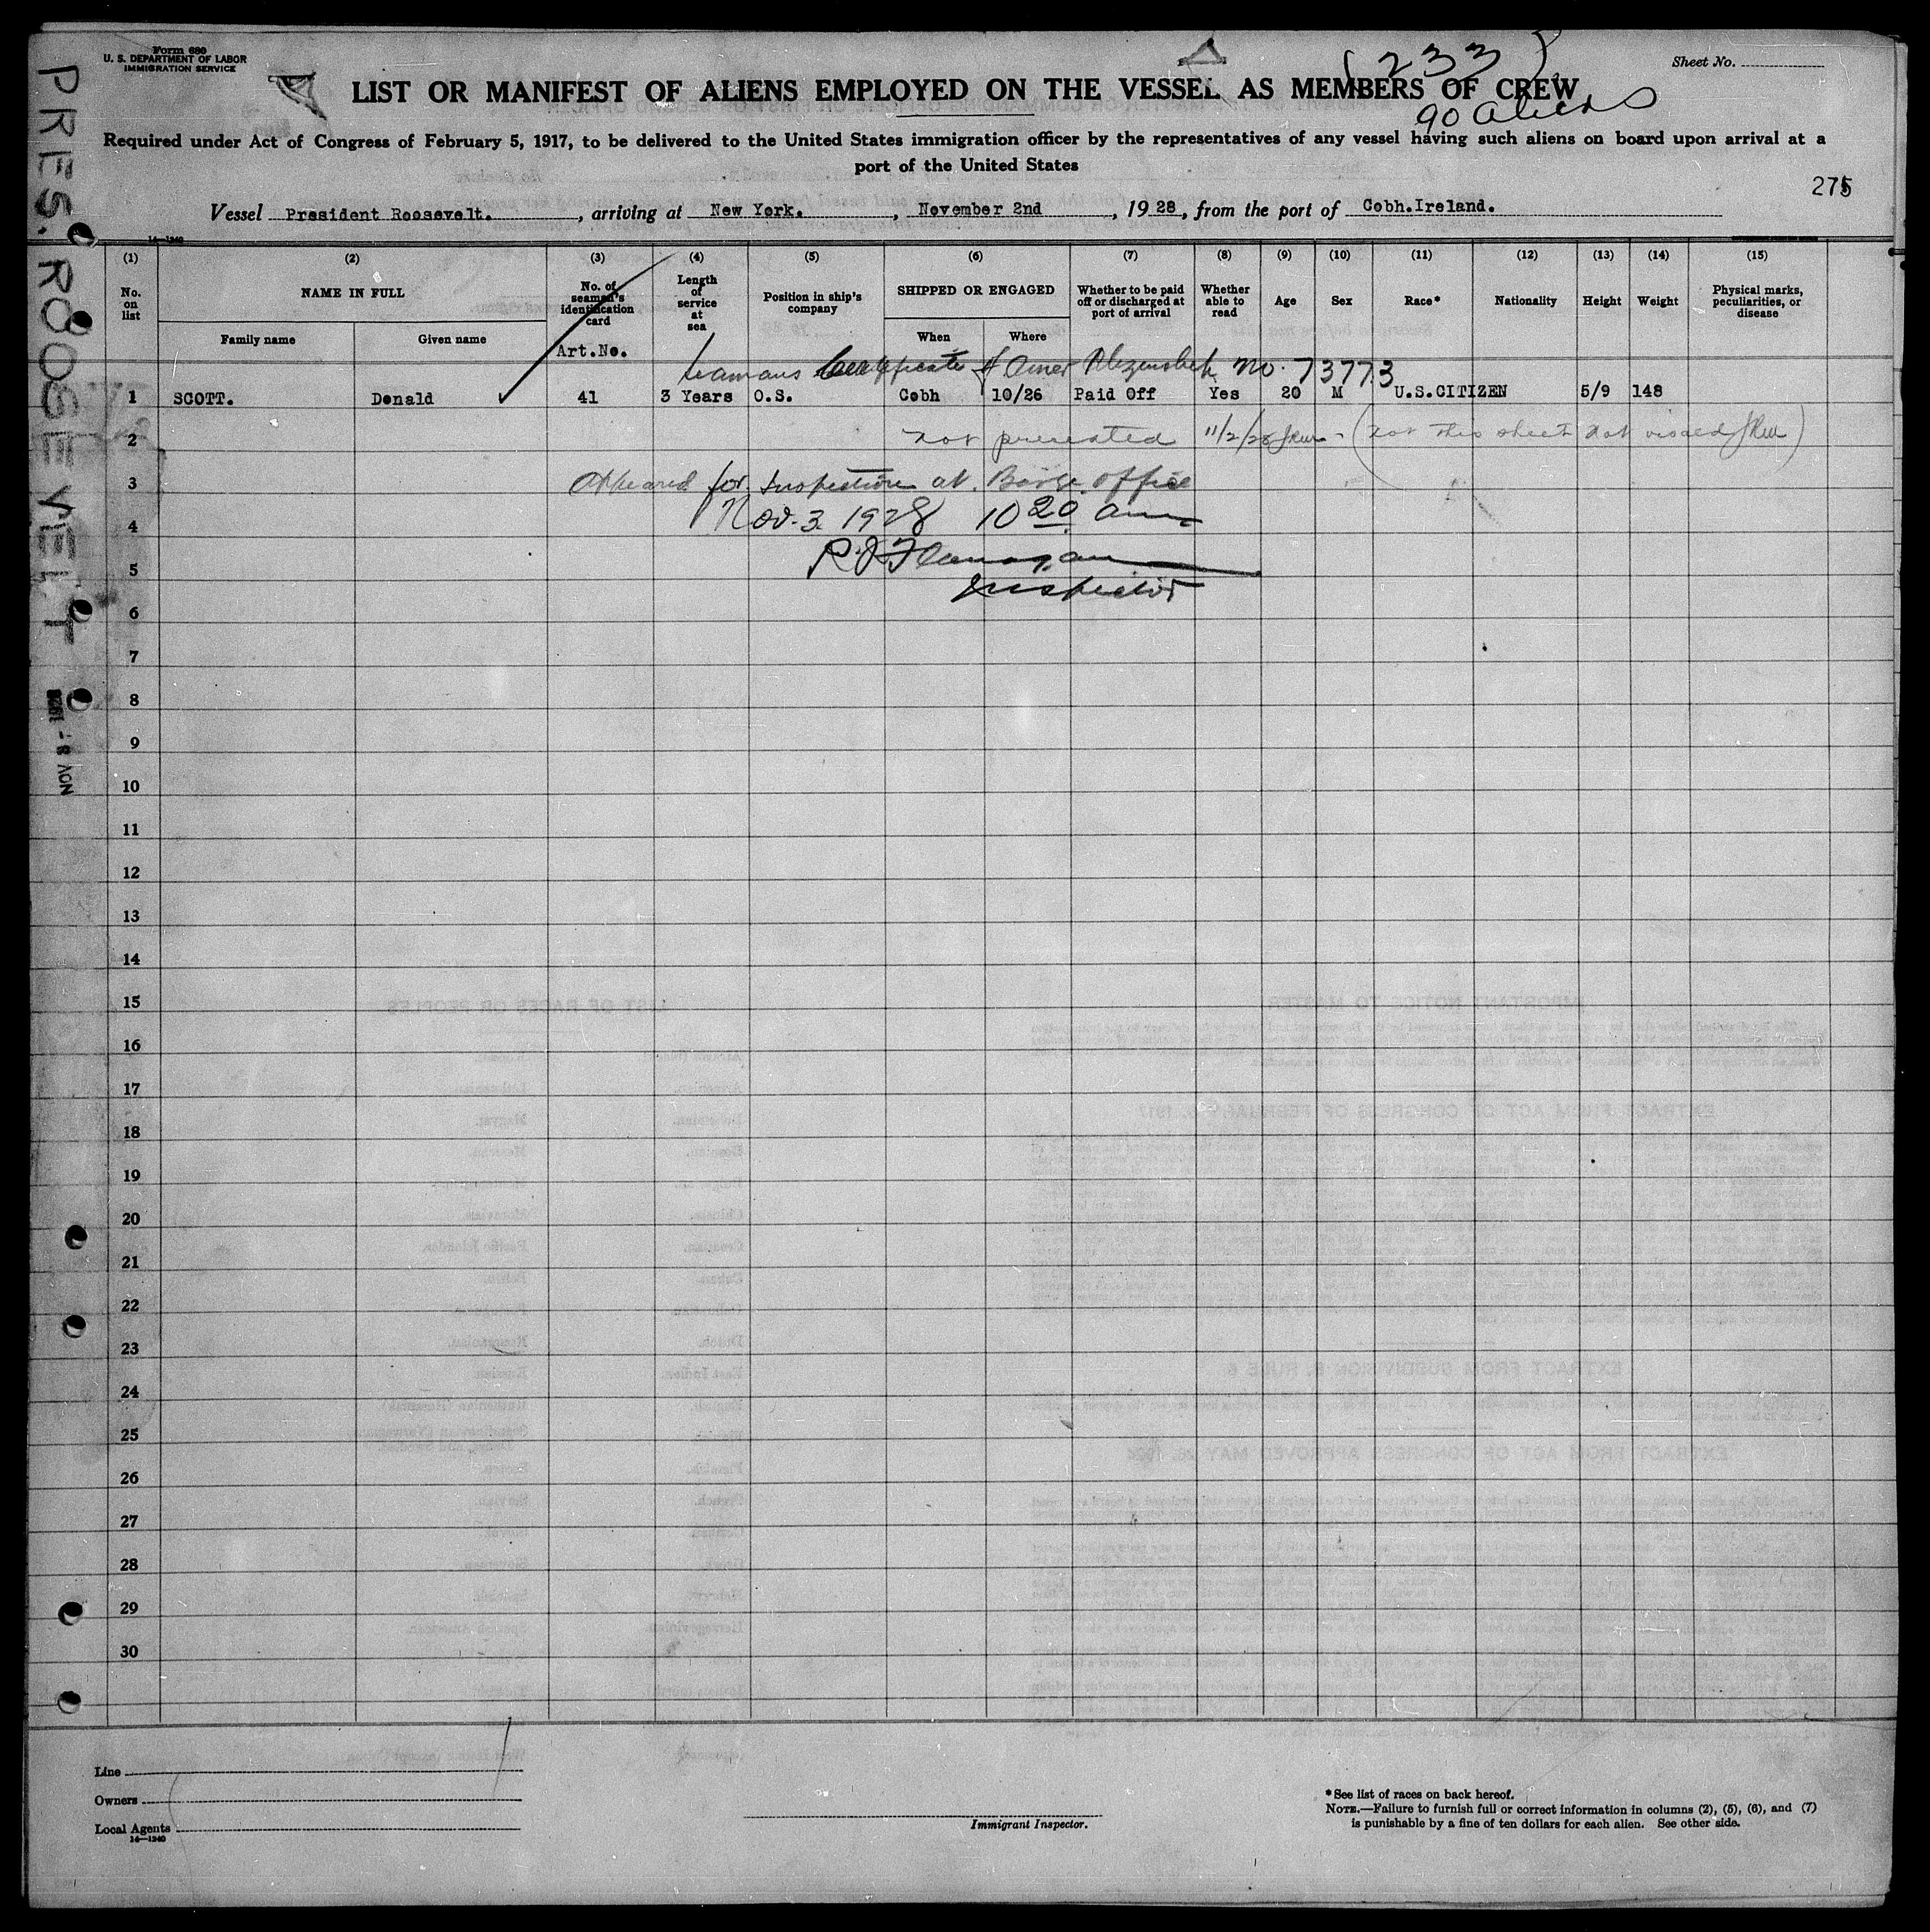 Form 680
U. S. DEPARTMENT OF LABOR
IMMIGRATION SERVICE
Sheet No.
(233)
LIST OR MANIFEST OF ALIENS EMPLOYED ON THE VESSEL AS MEMBERS OF CREW
90 aliens
Required under Act of Congress of February 5, 1917, to be delivered to the United States immigration officer by the representatives of any vessel having such aliens on board upon arrival at a
port of the United States
Vessel President Roosevelt. , arriving at New York. , November 2nd , 1928, from the port of Cobh.Ireland.
14—1240
PRES. ROOSEVELT
NOV 3 - 1928
(1) (2) (3) (4) (5) (6) (7) (8) (9) (10) (11) (12) (13) (14) (15)
No. on list
NAME IN FULL
Family name
Given name
No. of seaman's identification card
Art.No.
Length of service at sea
Position in ship's company
SHIPPED OR ENGAGED
When
Where
Whether to be paid off or discharged at port of arrival
Whether able to read
Age
Sex
Race*
Nationality
Height
Weight
Physical marks, peculiarities, or disease
Seamans Certificate of Amer Citizenship No. 73773
1 SCOTT. Donald 41 3 Years O.S. Cobh 10/26 Paid Off Yes 20 M U.S.CITIZEN 5/9 148
2 not presented 11/2/28 (not this sheet not visaed
3 Appeared for Inspection at Barge office
4 Nov. 3 1928 10 20 am
5 R.J. Flanagan
Inspector
6
7
8
9
10
11
12
13
14
15
16
17
18
19
20
21
22
23
24
25
26
27
28
29
30
Line
Owners
Local Agents
14—1240
Immigrant Inspector.
*See list of races on back hereof.
NOTE.—Failure to furnish full or correct information in columns (2), (5), (6), and (7)
is punishable by a fine of ten dollars for each alien. See other side.